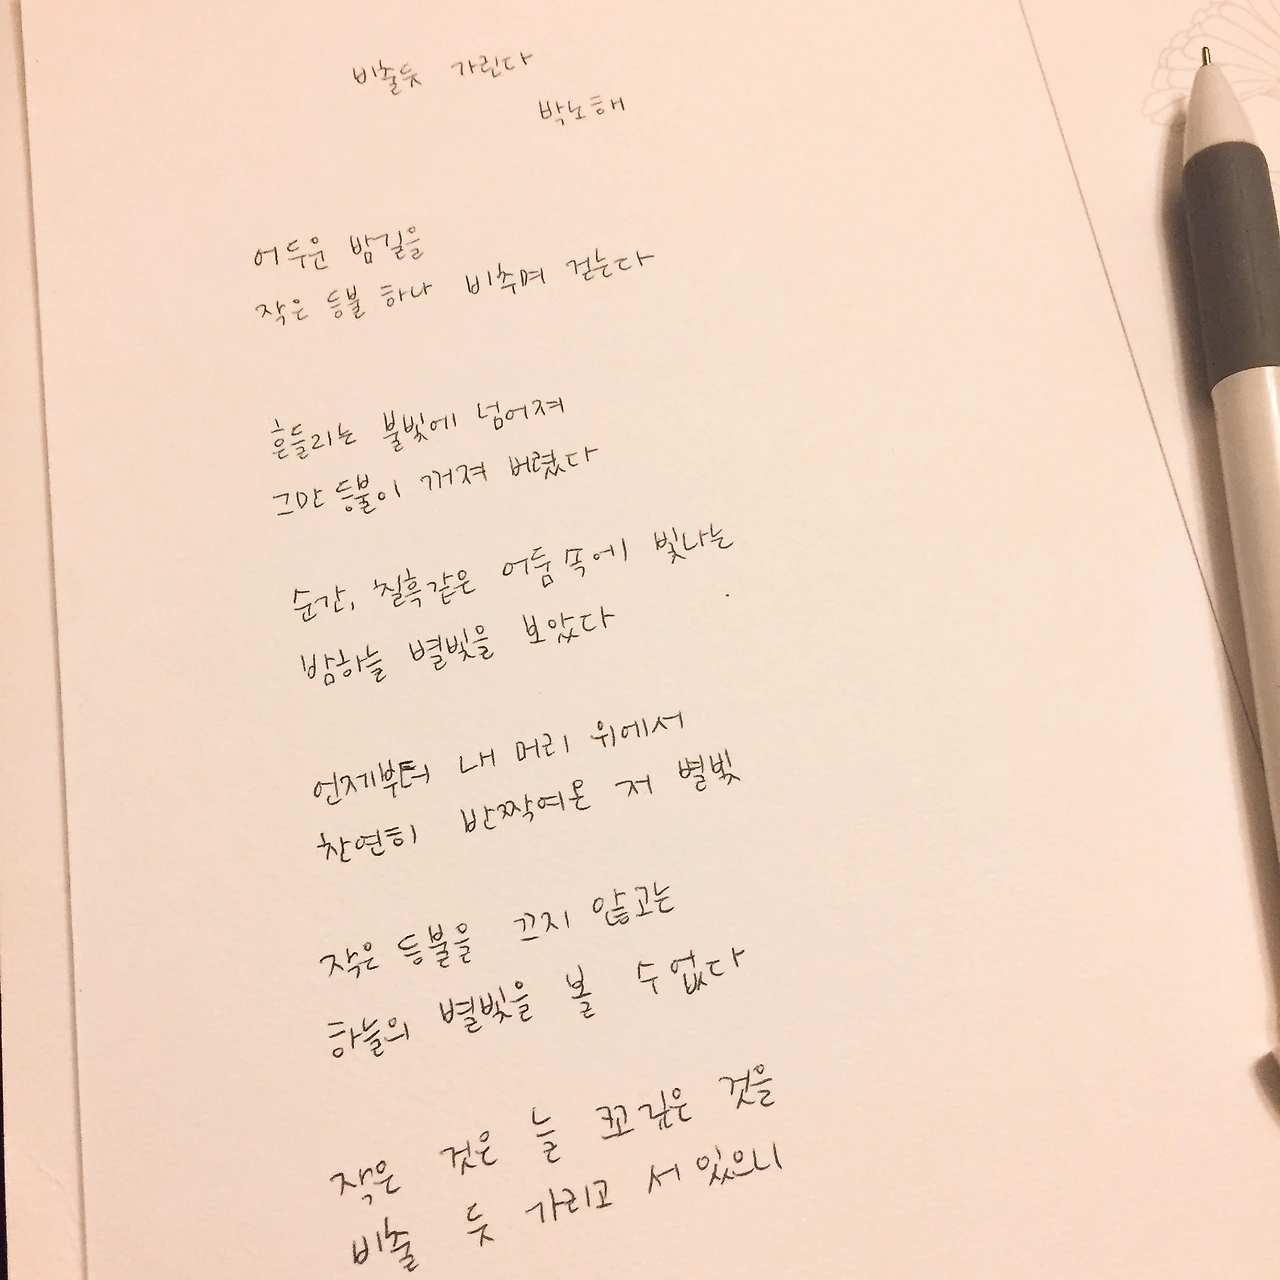 비출듯 가린다
박노해
어두운 밤길을
작은 등불 하나 비추며 걷는다
흔들리는 불빛에 넘어져
그만 등불이 꺼져 버렸다
순간, 칠흑같은 어둠 속에 빛나는
밤하늘 별빛을 보았다
언제부터 내 머리 위에서
찬연히 반짝여온 저 별빛
작은 등불을 끄지 않고는
하늘의 별빛을 볼 수 없다
작은 것은 늘 크고 깊은 것을
비출 듯 가리고 서 있으니